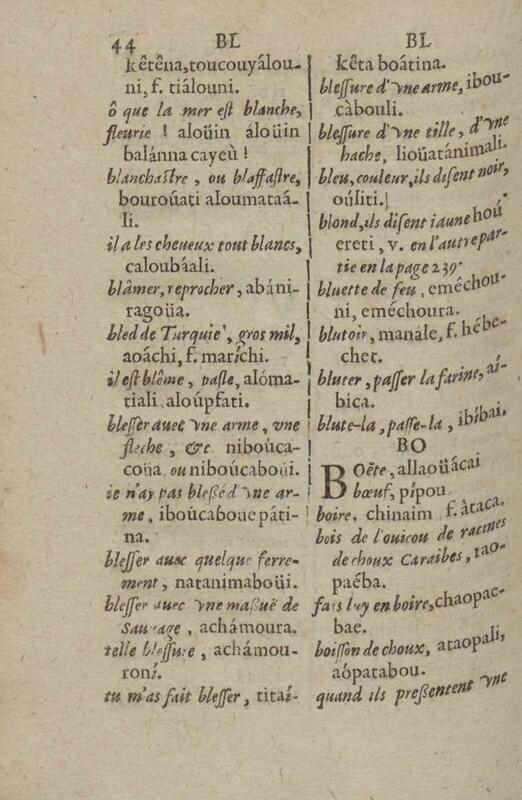 44 BL
kêtêna, toucouyálou-
ni, f. tiálouni.
ô que la mer eſt blanche,
fleurie ! aloüin áloüin
balánna cayeù !
blanchaſtre, ou blaffaſtre,
bouroúati aloumataá-
li.
il a les cheueux tout blancs,
caloubáali.
blâmer, reprocher, abáni-
ragoüa.
bled de Turquie, gros mil,
aoáchi, f. maríchi.
il eſt blême, paſle, alóma-
tiali aloúpfati.
bleſſer auec vne arme, vne
fleche, &c niboúca-
coüa ou niboúcaboüi.
ie n'ay pas bleßé d'vne ar-
me, iboúcaboue páti-
na.
bleſſer aux quelque ferre-
ment, natanimaboüi.
bleſſer auec vne maſſuë de
Sauuage, achámoura.
telle bleſſure, achámou-
roní.
tu m'as fait bleſſer, titaí-
BL
kêta boátina.
bleſſure d'vne arme, ibou-
càbouli.
bleſſure d'vne tille, d'vne
hache, lioüatánimali.
bleu, couleur, ils diſent noir,
oúliti.
blond, ils diſent iaune hou
ereti, v. en l'autre par-
tie en la page 239.
bluette de feu, eméchou-
ni, eméchoura.
blutoir, manále, f. hébe-
chet.
bluter, paſſer la farine, aí-
bica.
blute-la, paſſe-la, ibíbai.
BO
BOëte, allaoüácai
bœuf, pípou
boire, chinaim f. àtaca.
bois de l'ouicou de racines
de choux Caraibes, tao-
paéba.
fais luy en boire, chaopac-
bae.
boiſſon de choux, ataopali,
aópatabou.
quand ils preßentent vne